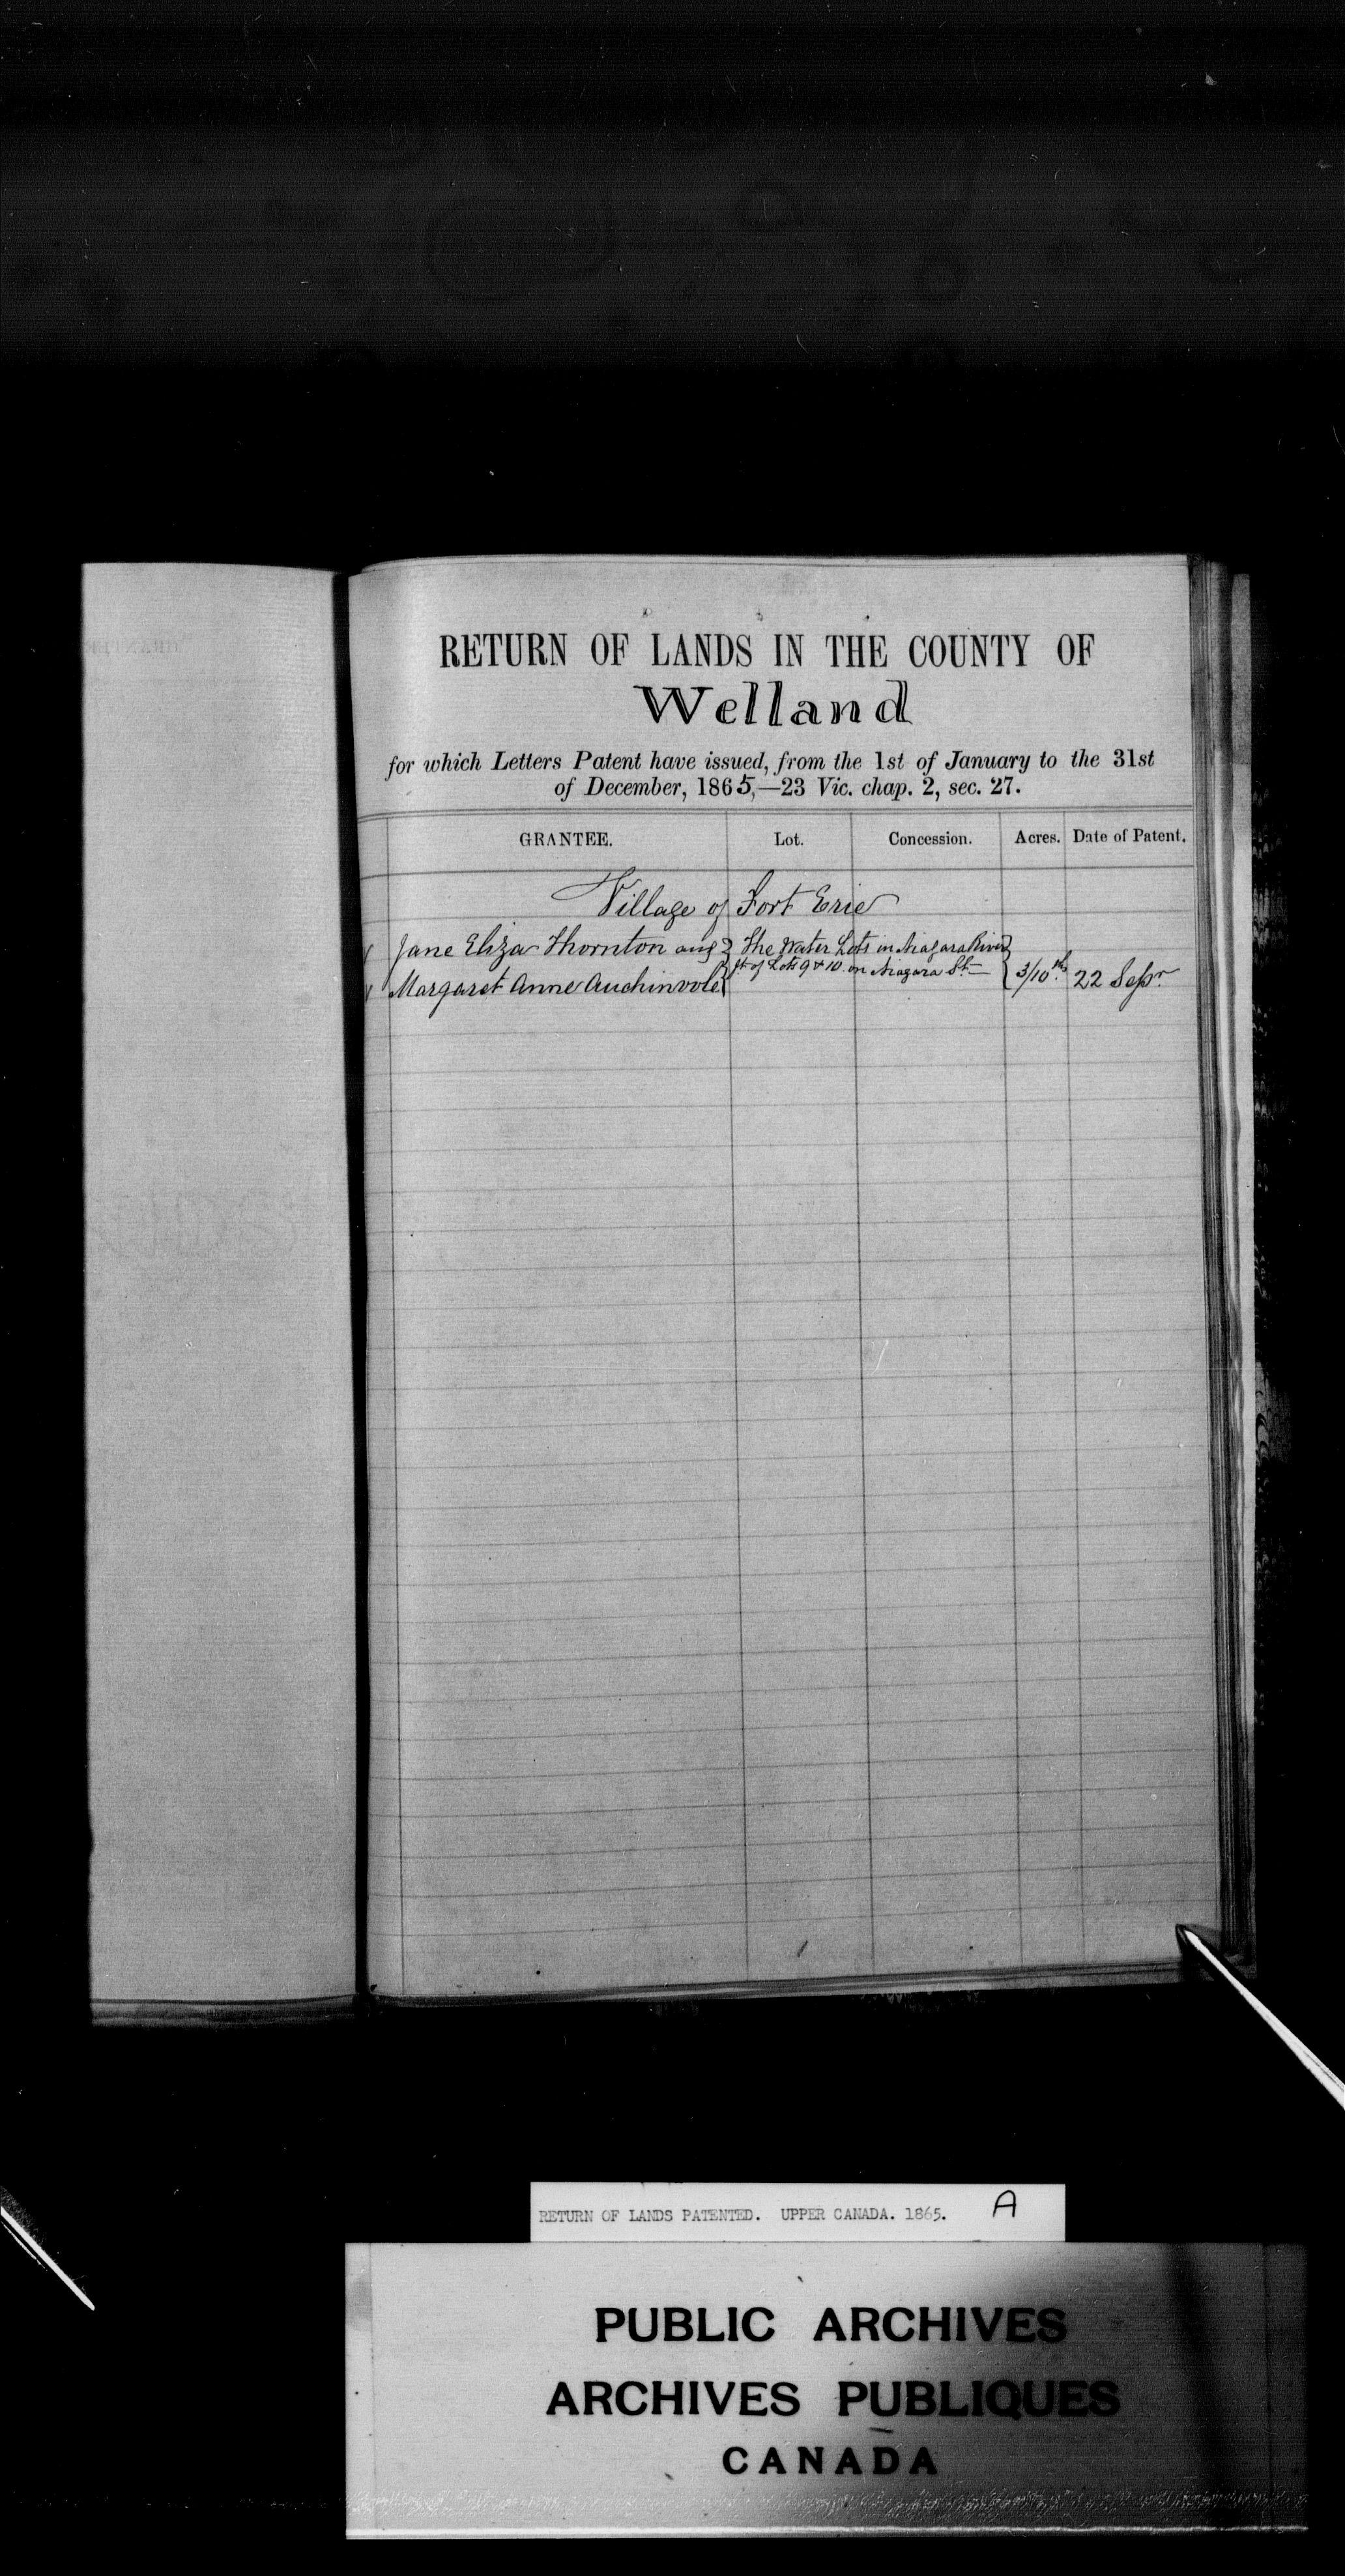 RETURN OF LANDS IN THE COUNTY OF
Welland
for which Letters Patent have issued, from the 1st of January to the 31st
of December, 1865,—23 Vic. chap. 2, sec. 27.
GRANTEE. Lot. Concession. Acres. Date of Patent.
Village of Fort Erie
Jane Eliza Thornton and The Water Lots in Niagara River
ft of Lots 9 & 10 on Niagara St.
Margaret Anne Auchinvole 3/10ths 22 Sepr
RETURN OF LANDS PATENTED. UPPER CANADA. 1865. A
PUBLIC ARCHIVES
ARCHIVES PUBLIQUES
CANADA